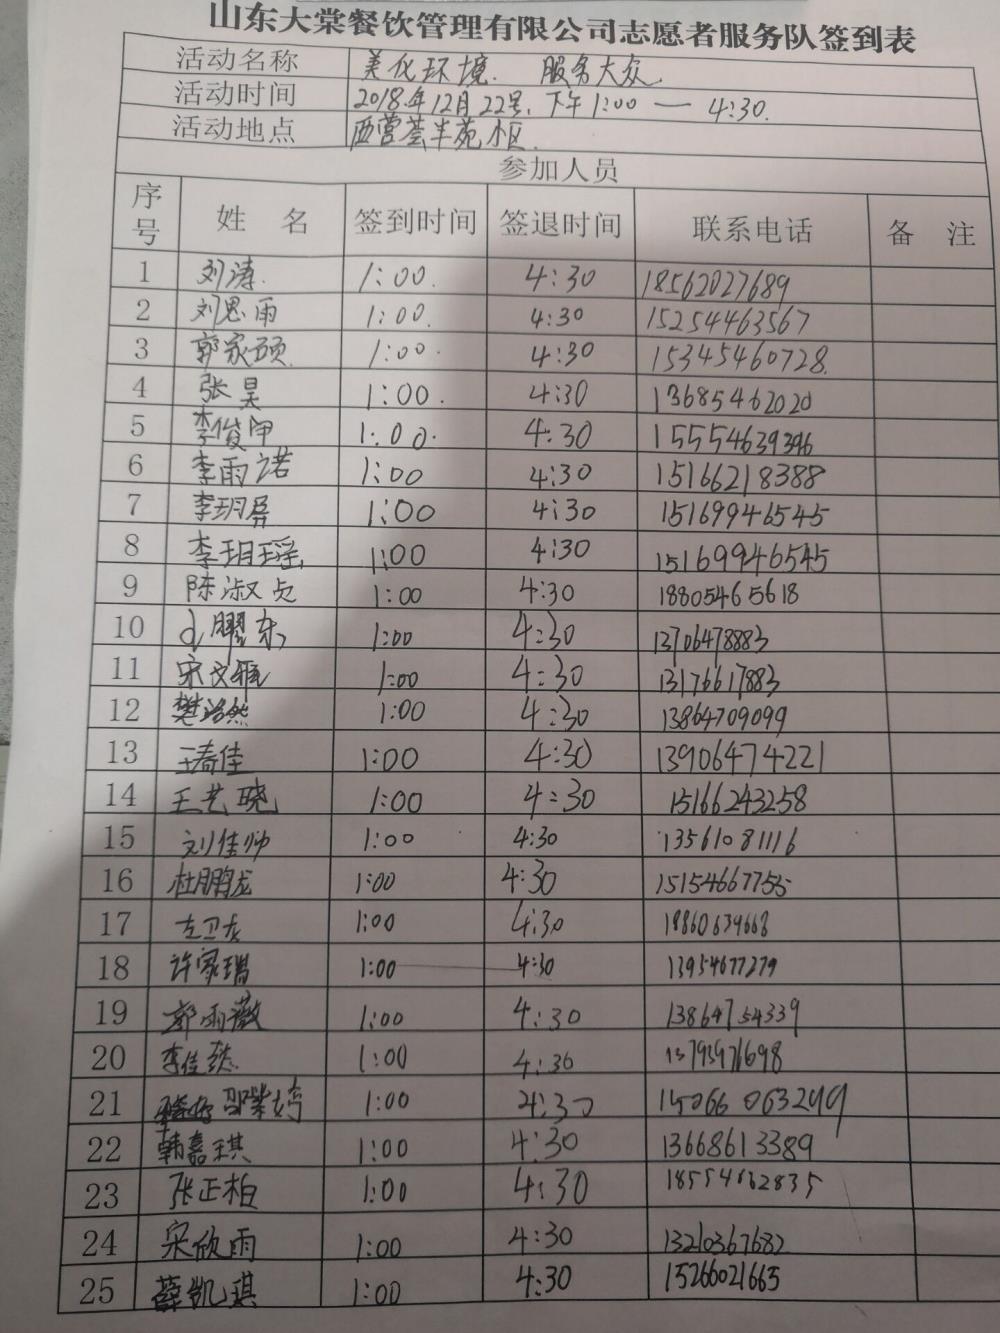 山东大棠餐饮管理有限公司志愿者服务队签到表
活动名称 美化环境. 服务大众
活动时间 2018.年12月22号.下午1:00 — 4:30.
活动地点 西营荟丰苑小区.
参加人员
序号 姓 名 签到时间 签退时间 联系电话 备 注
1 刘涛. 1:00. 4:30 18562027689
2 刘思雨 1:00. 4:30 15254463567
3 郭家硕 1:00. 4:30 15345460728.
4 张昊 1:00. 4:30 13685462020
5 李俊甲 1:00. 4:30 15554639396
6 李雨诺 1:00 4:30 15166218388
7 李玥 1:00 4:30 15169946545
8 李玥瑶 1:00 4:30 15169946545
9 陈淑贞 1:00 4:30 18805465618
10 1:00 4:30 13706478883
11 宋文雅 1:00 4:30 13176617883
12 樊浩然 1:00 4:30 13864709099
13 王春佳 1:00 4:30 13906474221
14 王艺晓 1:00 4:30 15166243258
15 刘佳帅 1:00 4:30 13561081116
16 杜鹏龙 1:00 4:30 15154667755
17 左卫东 1:00 4:30
18 许家瑞 1:00 4:30 13954677279
19 郭雨薇 1:00 4:30 13864754339
20 李佳懿 1:00 4:30 13793971698
21 邵紫婷 1:00 4:30 15066063249
22 韩嘉琪 1:00 4:30 13668613389
23 张正柏 1:00 4:30 18554662835
24 宋欣雨 1:00 4:30 13210367682
25 薛凯琪 1:00 4:30 15266021665